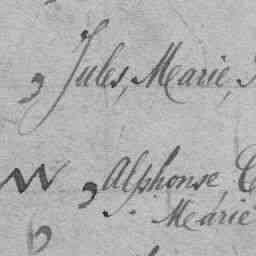 Jules, Marie,
Alphonse
Marie